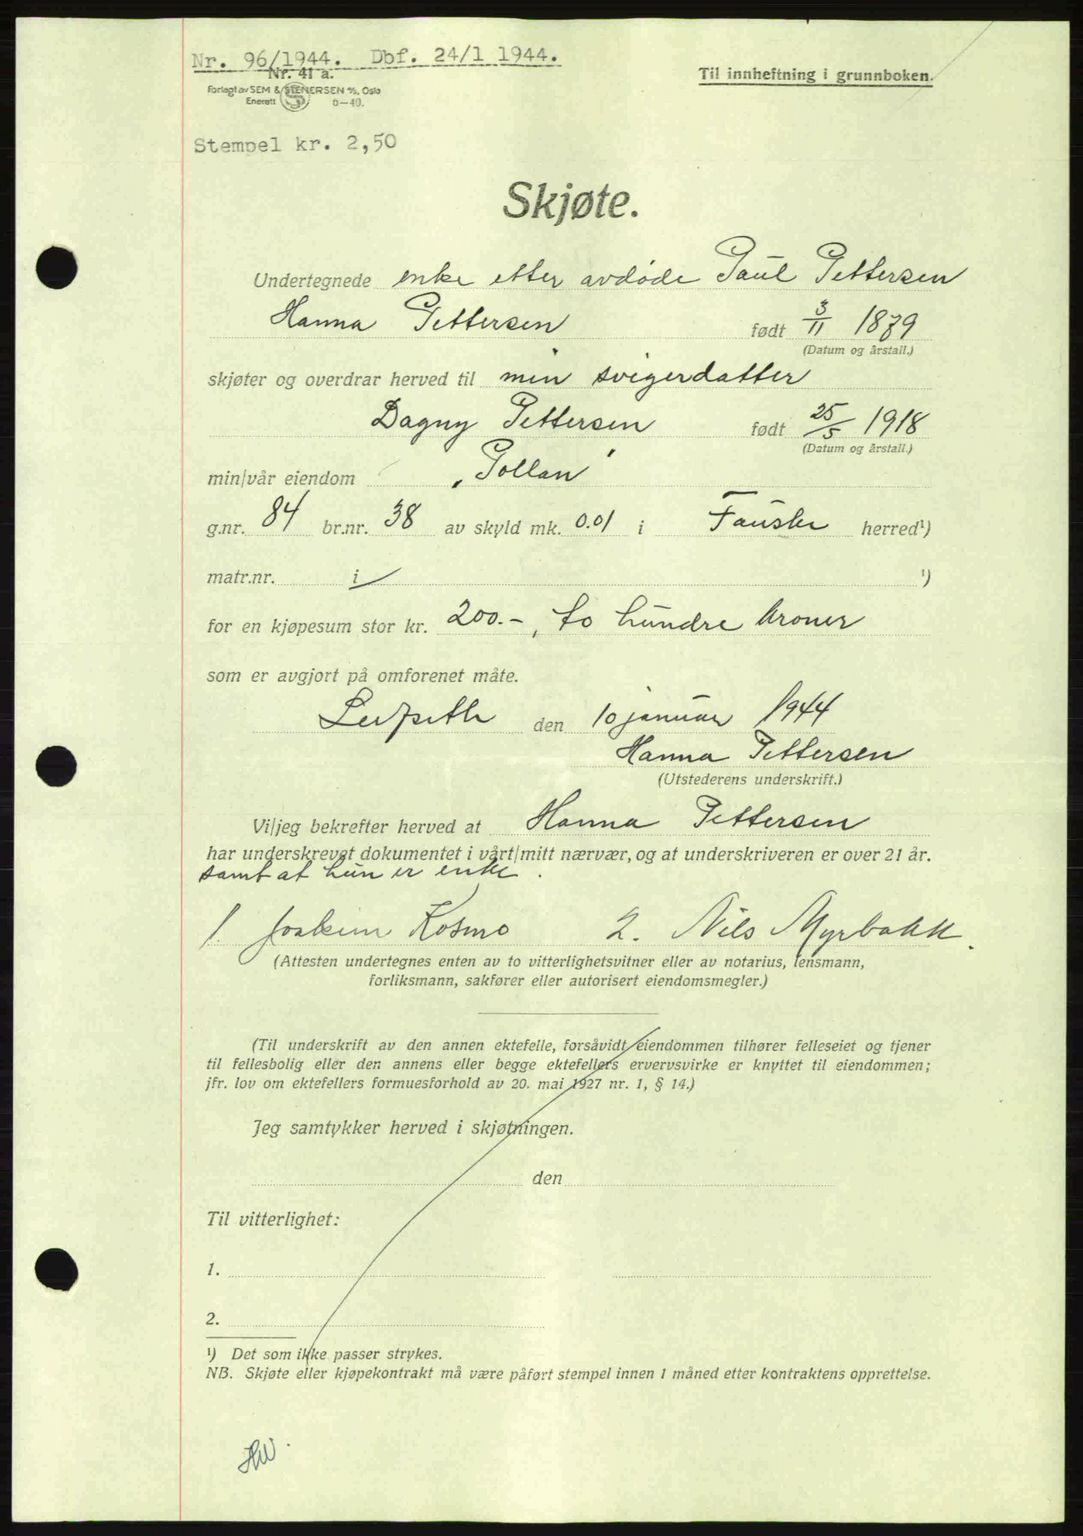 Nr. 96/1944. Dbf. 24/1 1944.
Til innheftning i grunnboken.
Nr. 41 a.
Forlagt av SEM & STENERSEN A/S, Oslo
Enerett 6—40.
Stempel kr. 2,50
Skjøte.
Undertegnede enke etter avdøde Paul Pettersen
Hanna Pettersen født 3/11 1879
(Datum og årstall.)
skjøter og overdrar herved til min svigerdatter
Dagny Pettersen født 25/5 1918
(Datum og årstall.)
min/vår eiendom „Pollan"
g.nr. 84 br.nr. 38 av skyld mk. 0.01 i Fauske herred¹)
matr.nr. i ¹)
for en kjøpesum stor kr. 200.-, to hundre kroner
som er avgjort på omforenet måte.
den 10 januar 1944
Hanna Pettersen
(Utstederens underskrift.)
Vi/jeg bekrefter herved at Hanna Pettersen
har underskrevet dokumentet i vårt/mitt nærvær, og at underskriveren er over 21 år.
samt at hun er enke.
1. Joakim Kosmo 2. Nils Myrbakk.
(Attesten undertegnes enten av to vitterlighetsvitner eller av notarius, lensmann,
forliksmann, sakfører eller autorisert eiendomsmegler.)
(Til underskrift av den annen ektefelle, forsåvidt eiendommen tilhører felleseiet og tjener
til fellesbolig eller den annens eller begge ektefellers ervervsvirke er knyttet til eiendommen;
jfr. lov om ektefellers formuesforhold av 20. mai 1927 nr. 1, § 14.)
Jeg samtykker herved i skjøtningen.
den
Til vitterlighet:
1.
2.
¹) Det som ikke passer strykes.
NB. Skjøte eller kjøpekontrakt må være påført stempel innen 1 måned etter kontraktens opprettelse.